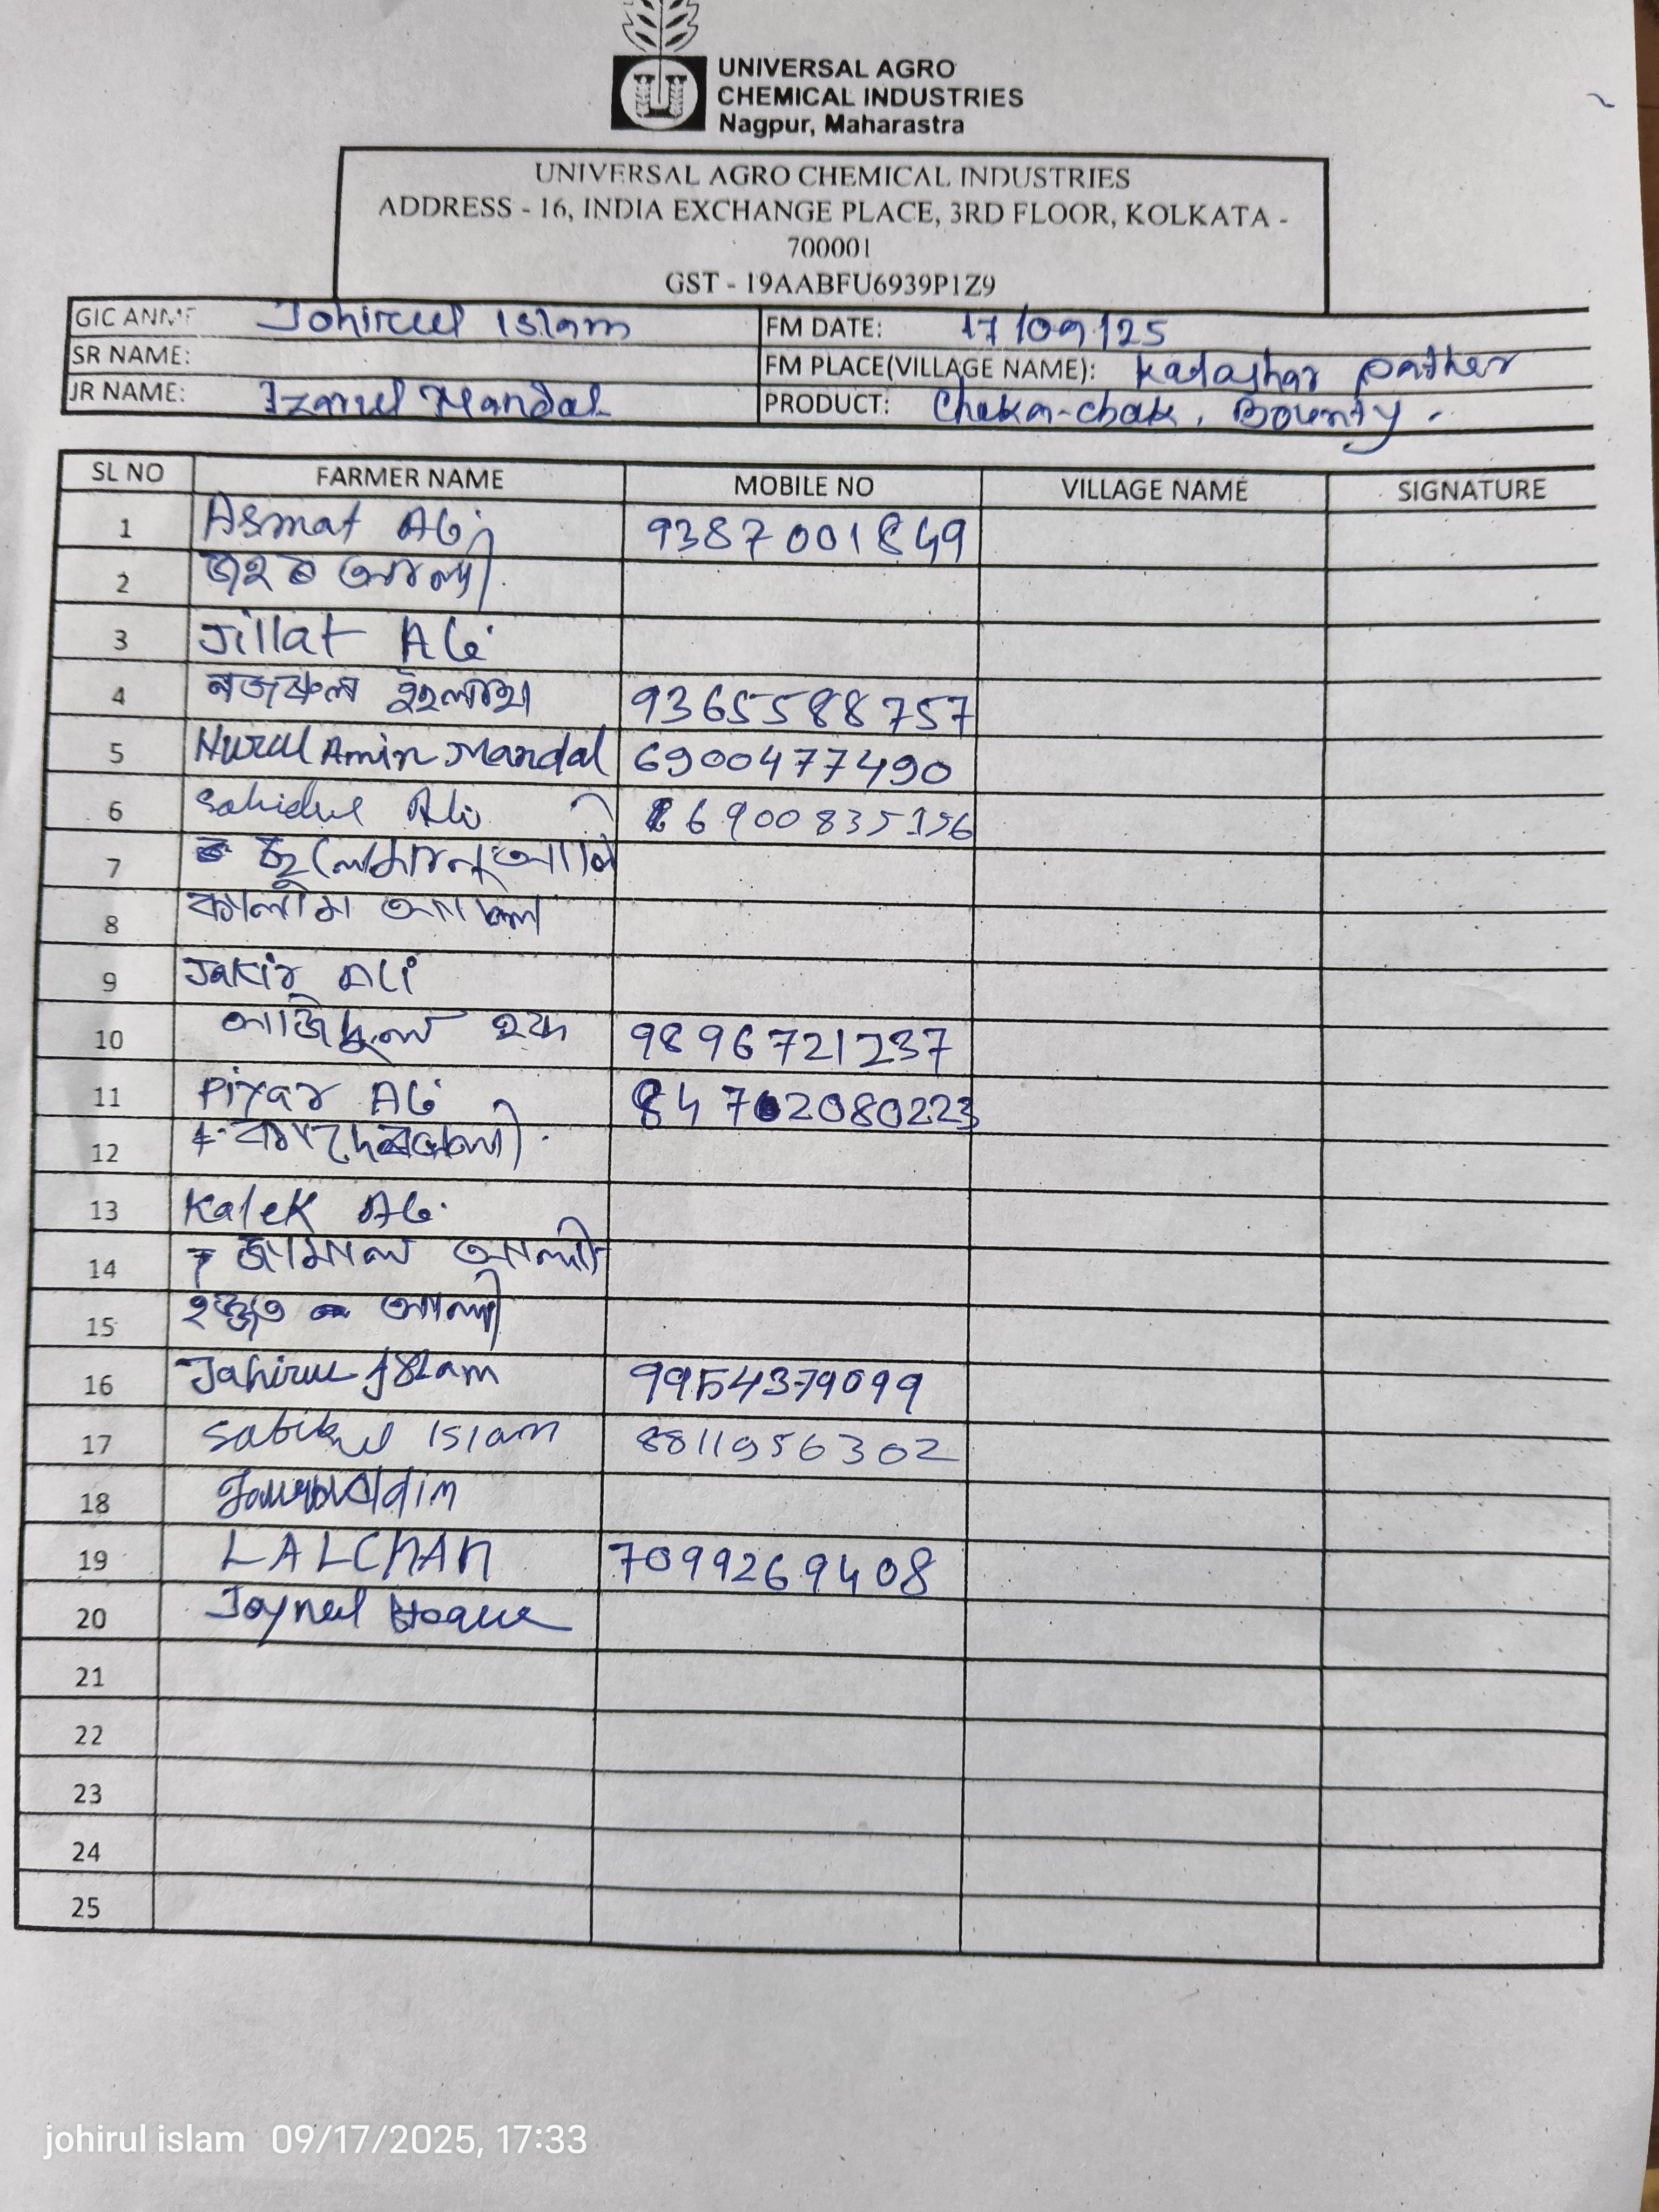 UNIVERSAL AGRO
CHEMICAL INDUSTRIES
Nagpur, Maharastra
UNIVERSAL AGRO CHEMICAL INDUSTRIES
ADDRESS - 16, INDIA EXCHANGE PLACE, 3RD FLOOR, KOLKATA -
700001
GST - 19AABFU6939P1Z9
GIC ANME Johirul Islam FM DATE: 17/09/25
SR NAME: FM PLACE(VILLAGE NAME): Kadashar pather
JR NAME: Izarul Mandal PRODUCT: Chaka-chak, Bounty.
SL NO FARMER NAME MOBILE NO VILLAGE NAME SIGNATURE
1 Asmat Ali 9387001849
2 আলী
3 Jillat Ali
4 নজৰুল ইছলাম 9365588757
5 Nurul Amin Mandal 6900477490
6 Sahidul Ali 6900835156
7
8 কালাম
9 Jakir Ali
10 হক 9896721237
11 Piyar Ali
12
13 Kalek Ali
14 জামাল আলী
15 আলী
16 Jahirul Islam 9954379099
17 Islam 8811956302
18
19 LALCHAN 7099269408
20 Joynul Hoque
21
22
23
24
25
johirul islam 09/17/2025, 17:33